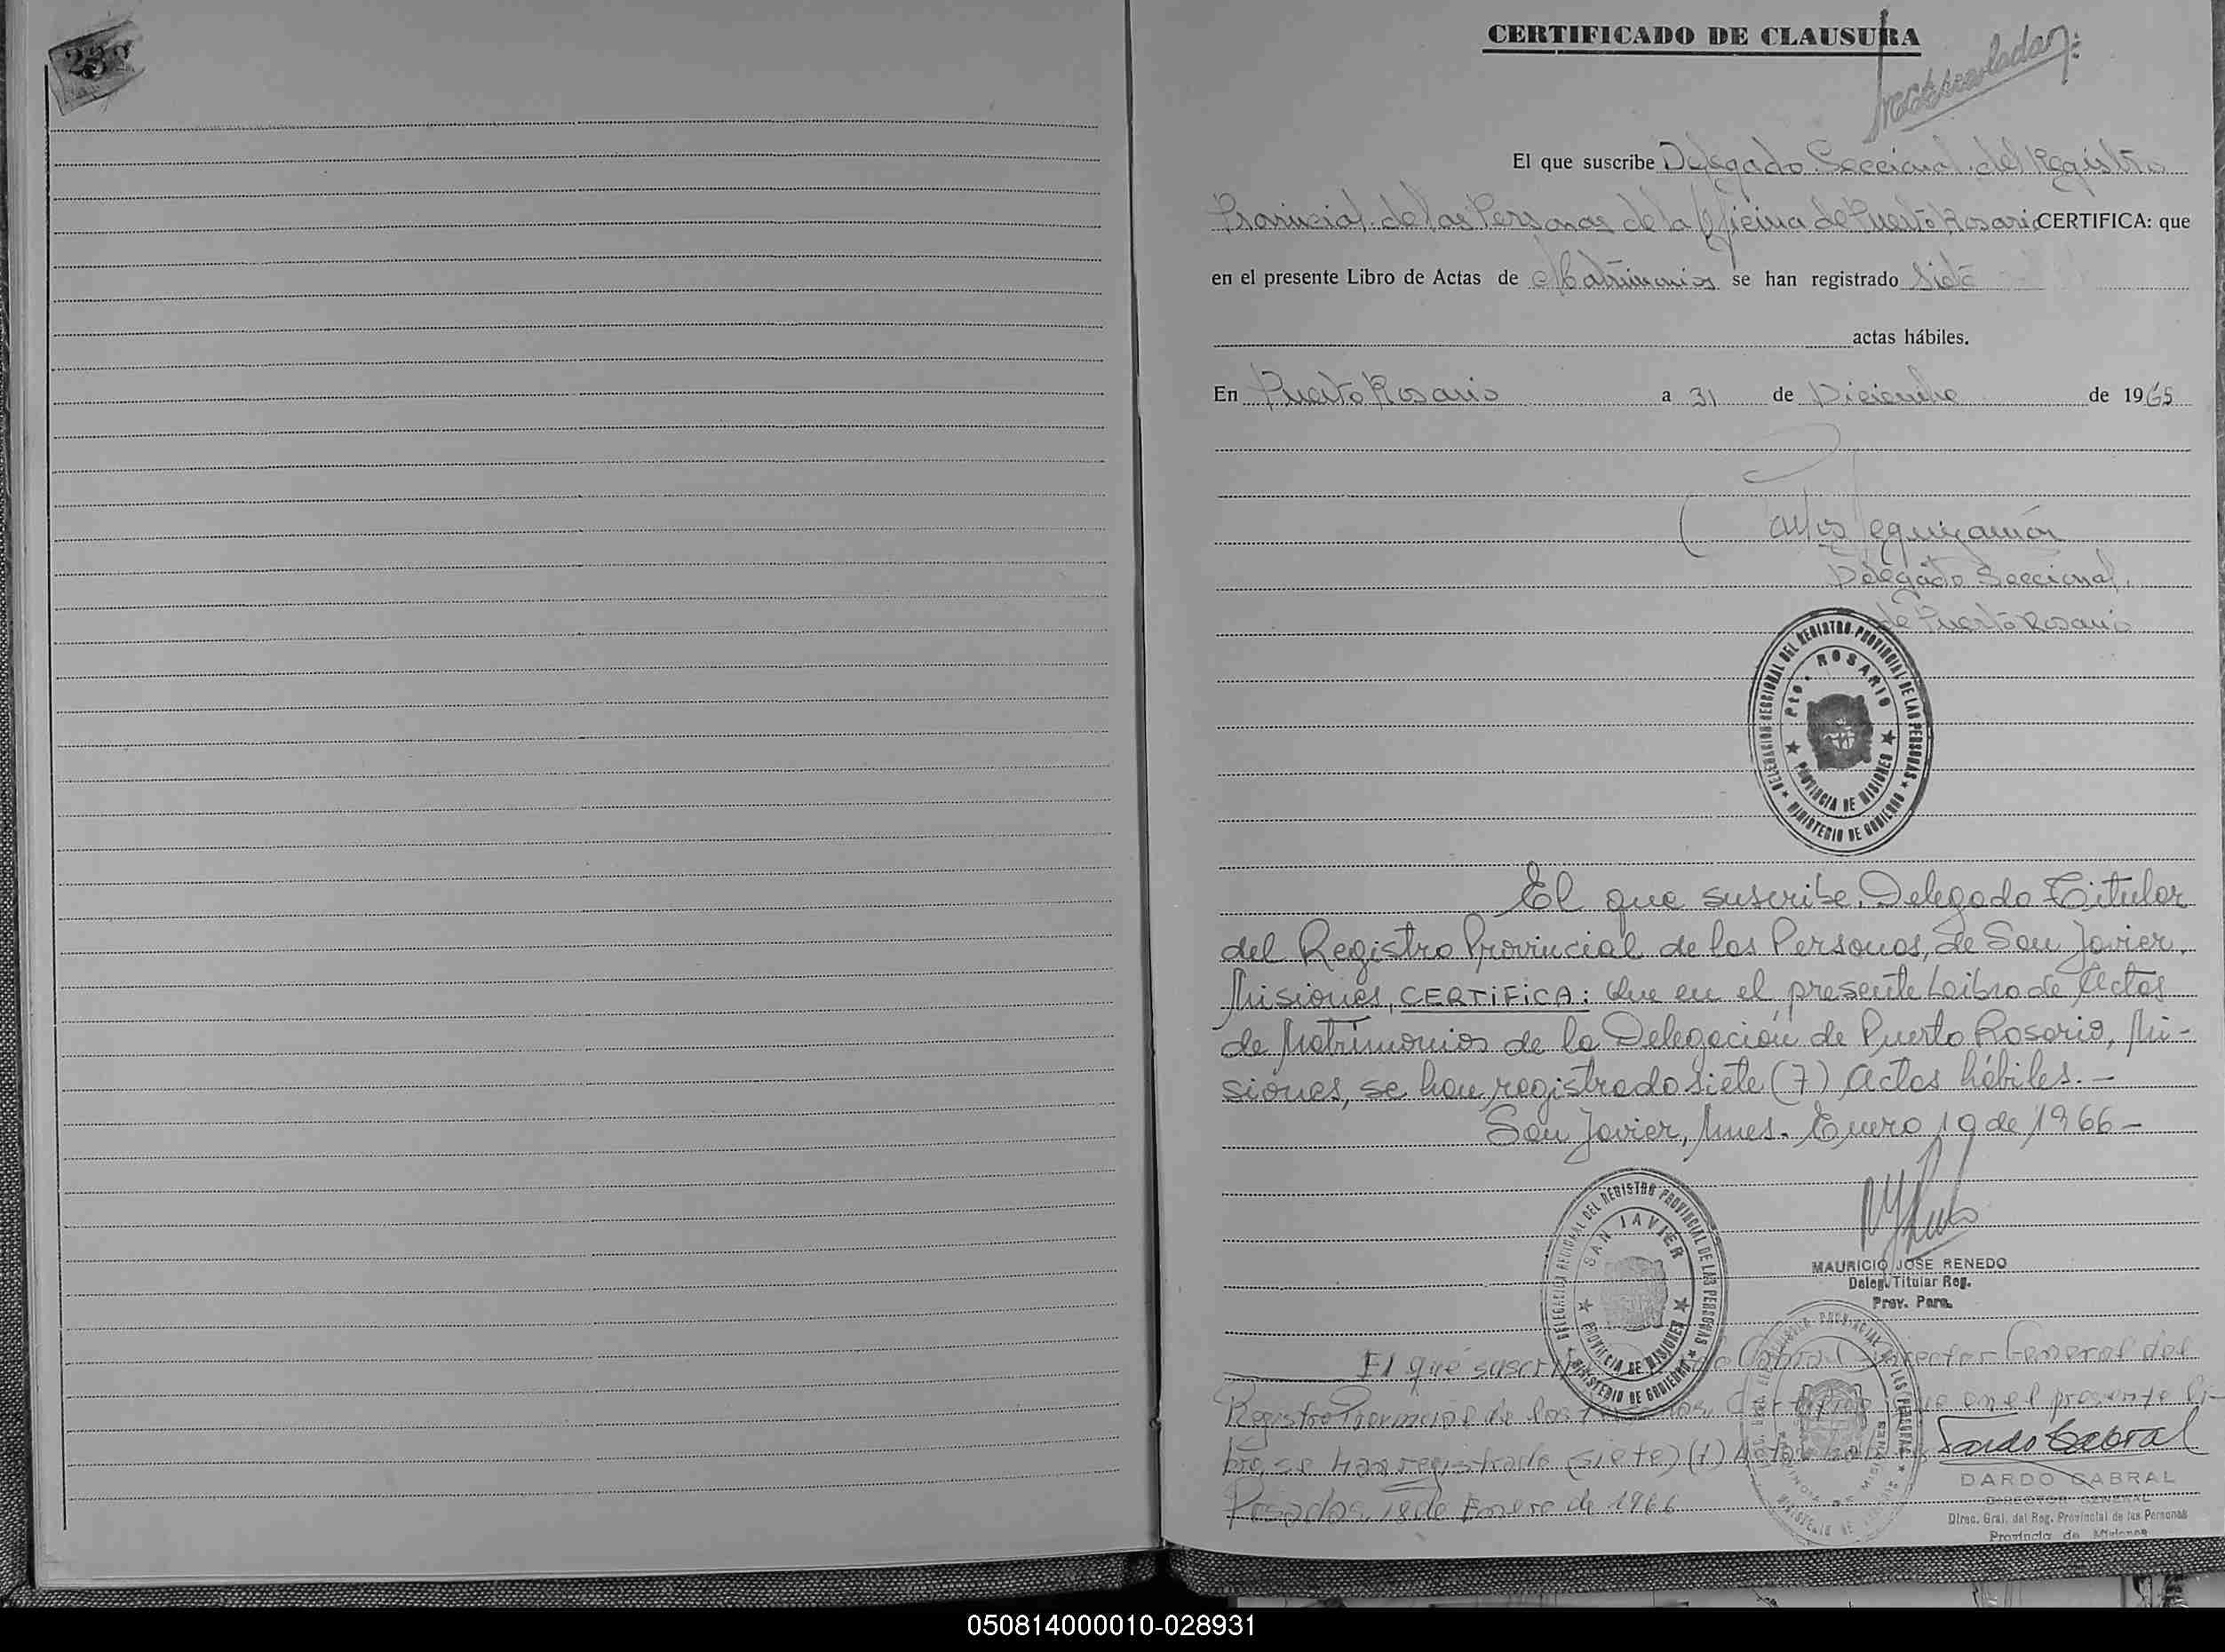 232
CERTIFICADO DE CLAUSURA
El que suscribe Delegado Seccional del Registro
Provincial de las Personas de la Oficina de Puerto Rosario CERTIFICA: que
en el presente Libro de Actas de Matrimonios se han registrado Siete
actas hábiles.
En Puerto Rosario a 31 de Diciembre de 1965
Carlos Leguizamón
Delegado Seccional
de Puerto Rosario
DELEGACION SECCIONAL DEL REGISTRO PROVINCIAL DE LAS PERSONAS ★ MINISTERIO DE GOBIERNO ★
Pto. ROSARIO ★ PROVINCIA DE MISIONES ★
El que suscribe, Delegado Titular
del Registro Provincial de las Personas, de San Javier,
Misiones, CERTIFICA: Que en el presente Libro de Actas
de Matrimonios de la Delegación de Puerto Rosario, Mi-
siones, se han registrado siete (7) Actas hábiles. -
San Javier, Mnes. Enero 19 de 1966 -
DELEGACION REGIONAL DEL REGISTRO PROVINCIAL DE LAS PERSONAS ★ MINISTERIO DE GOBIERNO ★
SAN JAVIER ★ PROVINCIA DE MISIONES ★
MAURICIO JOSE RENEDO
Deleg. Titular Reg.
Prov. Pers.
El que suscribe Cabral Director General del
Registro Provincial de las que en el presente li-
bro, se han registrado (siete) (7)
Dardo Cabral
Posadas, 18 de Enero de 1966
DARDO CABRAL
DIRECTOR GENERAL
Direc. Gral. del Reg. Provincial de las Personas
Provincia de Misiones
050814000010-028931